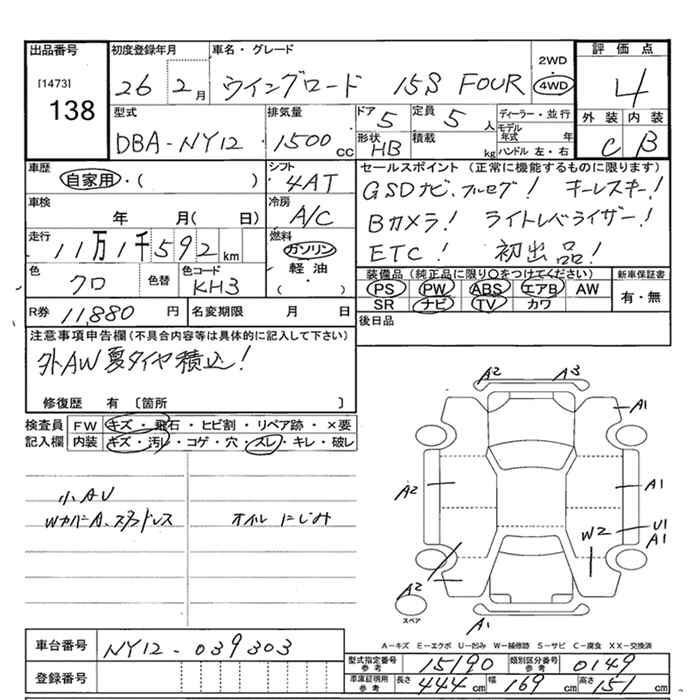 出品番号 初度登録年月 車名・グレード 2WD 評価点
[1473] 138 26 2月 ウイングロード 15S FOUR 4WD 4
型式 排気量 ドア 定員 ディーラー・並行 外装 内装
DBA-NY12 1500cc 5 5人 モデル年式 年 C B
形状 HB 積載 kg ハンドル 左・右
車歴 シフト セールスポイント (正常に機能するものに限ります)
自家用・( ) 4AT GSDナビ、フルセグ! キーレスキー!
車検 冷房 Bカメラ! ライトレベライザー!
年 月( 日) A/C ETC! 初出品!
走行 燃料
11万1千592km ガソリン
軽油
・( )
色 色替 色コード 装備品 (純正品に限り○をつけてください) 新車保証書
クロ KH3 PS PW ABS エアB AW 有・無
SR ナビ TV カワ
R券 11,880円 名変期限 月 日 後日品
注意事項申告欄(不具合内容等は具体的に記入して下さい)
外AW夏タイヤ積込!
修復歴 有 〔箇所 〕
検査員 FW キズ・飛石・ヒビ割・リペア跡・×要
記入欄 内装 キズ・汚レ・コゲ・穴・スレ・キレ・破レ
A2 A3
A1
小AU
WカバーA、スタッドレス オイルにじみ
A2 A1
W2 U1
A1
A2
スペア
A1
A-キズ E-エクボ U-凹み W-補修跡 S-サビ C-腐食 XX-交換済
車台番号 NY12-039303
型式指定番号 参考 15190 類別区分番号 参考 0149
登録番号 車庫証明用 参考 長さ 444cm 幅 169cm 高さ 151cm